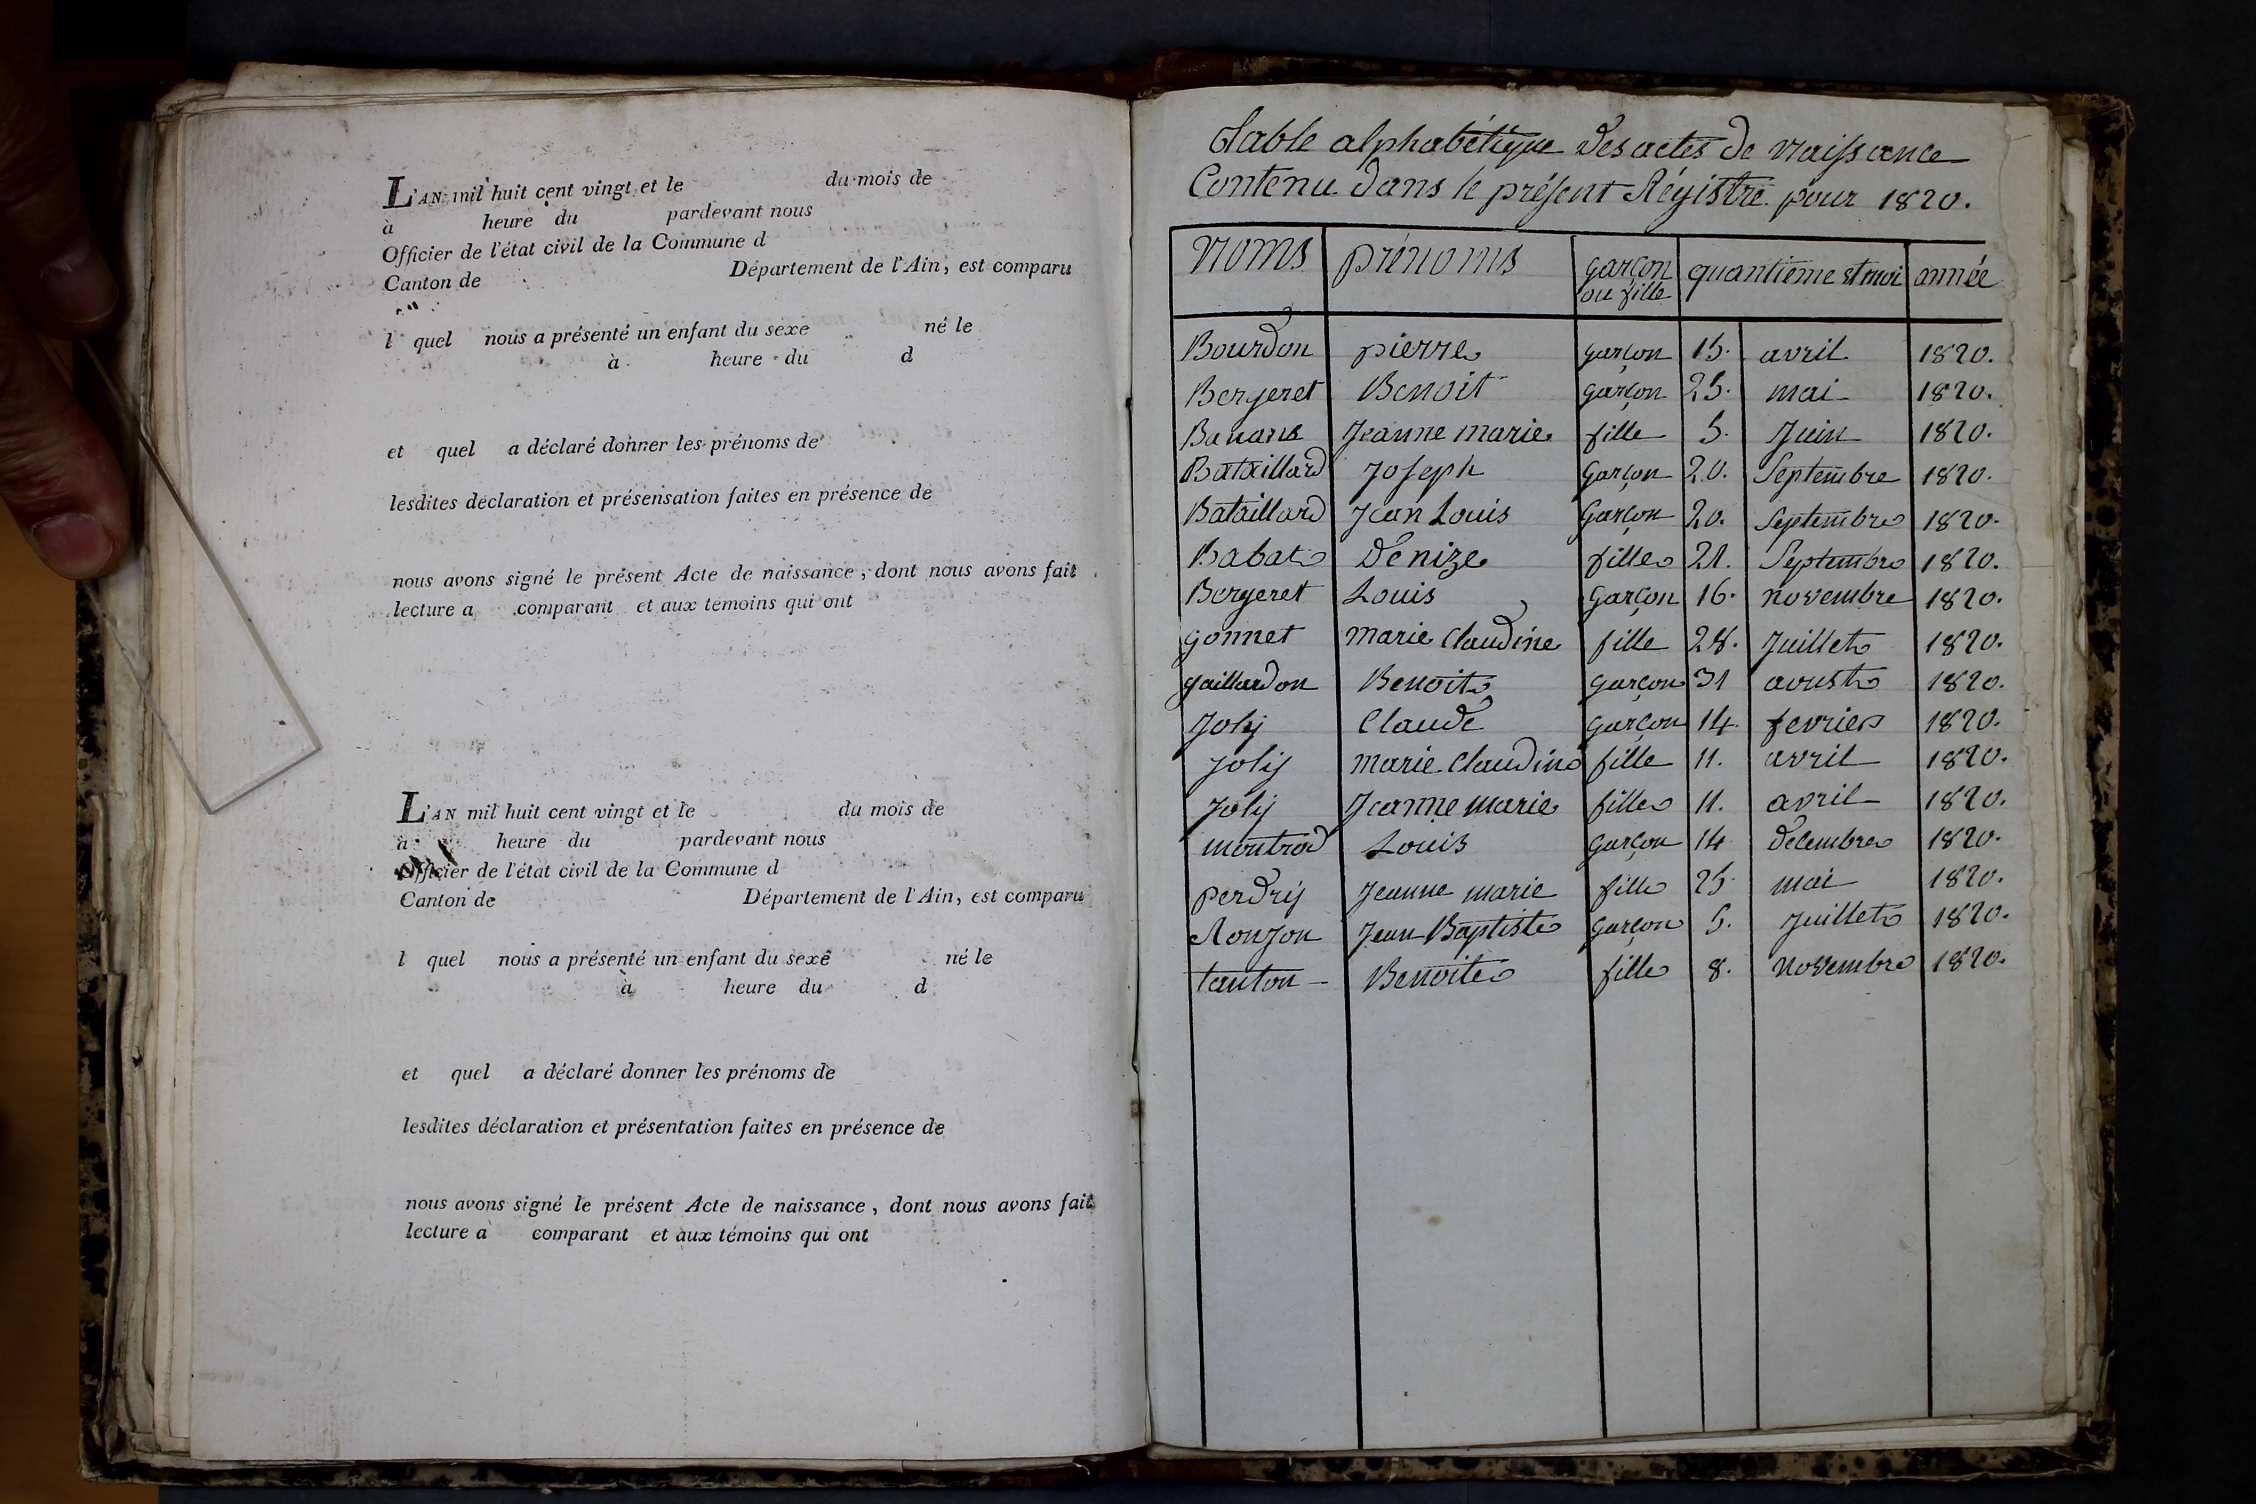 L'AN mil huit cent vingt et le du mois de
à heure du pardevant nous
Officier de l'état civil de la Commune d
Canton de Département de l'Ain, est comparu
l quel nous a présenté un enfant du sexe né le
à heure du d
et quel a déclaré donner les prénoms de
lesdites déclaration et présensation faites en présence de
nous avons signé le présent Acte de naissance, dont nous avons fait
lecture a comparant et aux témoins qui ont
L'AN mil huit cent vingt et le du mois de
à heure du pardevant nous
Officier de l'état civil de la Commune d
Canton de Département de l'Ain, est comparu
l quel nous a présenté un enfant du sexe né le
à heure du d
et quel a déclaré donner les prénoms de
lesdites déclaration et présentation faites en présence de
nous avons signé le présent Acte de naissance, dont nous avons fait
lecture a comparant et aux témoins qui ont
Table alphabétique des actes de naissance
Contenu dans le présent Régistre pour 1820.
noms prénoms garçon ou fille quantieme et moi année
Bourdon pierre garçon 15. avril 1820.
Bergeret Benoit garçon 25. mai 1820.
Banans Jeanne marie fille 5. Juin 1820.
Bataillard Joseph Garçon 20. Septembre 1820.
Bataillard Jean Louis Garçon 20. Septembre 1820.
Babat Denize fille 21. Septembre 1820.
Bergeret Louis Garçon 16. novembre 1820.
gonnet marie Claudine fille 28. Juillet 1820.
gaillardon Benoit garçon 31 aoust 1820.
Joly Claude garçon 14. fevrier 1820.
Joly marie Claudine fille 11. avril 1820.
Joly Jeanne marie fille 11. avril 1820.
montrod Louis garçon 14 decembre 1820.
perdry Jeanne marie fille 25. mai 1820.
Ronjon Jean Baptiste Garçon 5. Juillet 1820.
tanton Benoite fille 8. novembre 1820.